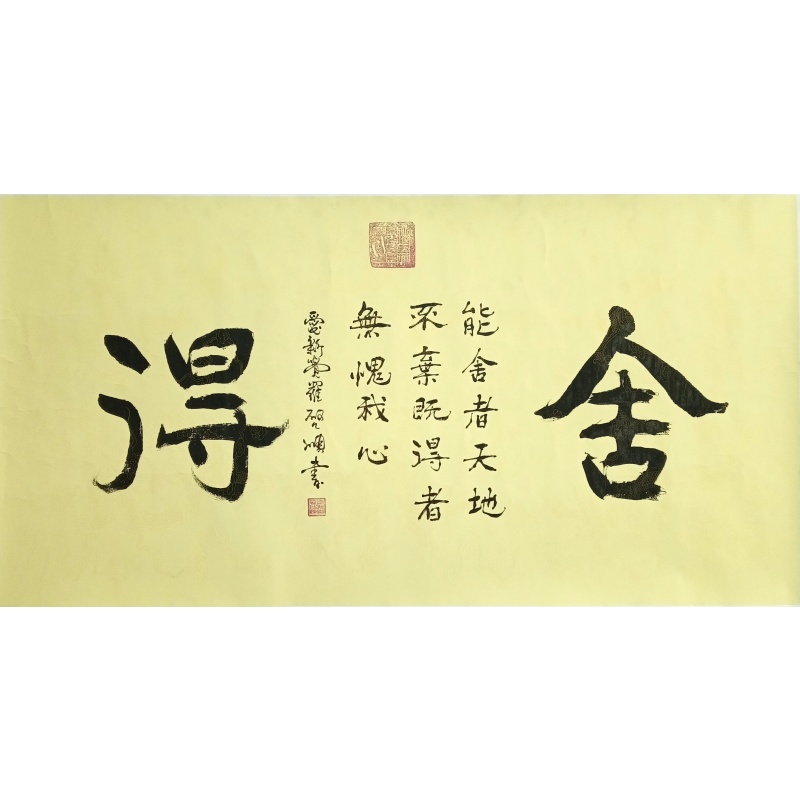 舍
能舍者天地
不棄既得者
無愧我心
愛新覺羅啓順書
得